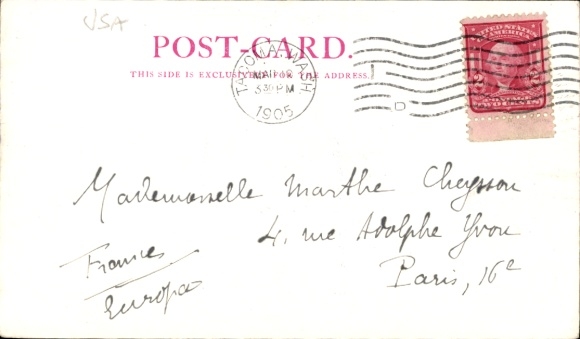 USA
POST-CARD.
THIS SIDE IS EXCLUSIVELY FOR THE ADDRESS.
TACOMA, WASH
3 30 PM
1905
D
UNITED STATES OF AMERICA
POSTAGE
TWO CENTS
Mademoiselle Marthe Cheysson
4, rue Adolphe Yvon
Paris, 16e
France
Europa